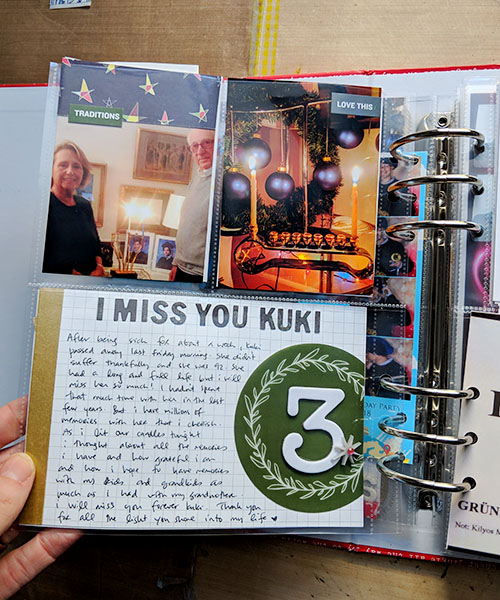 TRADITIONS
LOVE THIS
I MISS YOU KUKI
After being sick for about a week, kuki
passed away last friday morning. she didn't
suffer thankfully and she was 92. she
had a long and full life but i will
miss her so much! i hadn't spent
that much time with her in the last
few years but i have millions of
memories with her that i cherish.
As i lit our candles tonight
i thought about all the memories
i have and how grateful i am
and how i hope to have memories
with my kids and grandkids as
much as i had with my grandmother.
i will miss you forever kuki. Thank you
for all the light you shone into my life
3
DAY PARTY
GRÜN
Not: Kilyos M